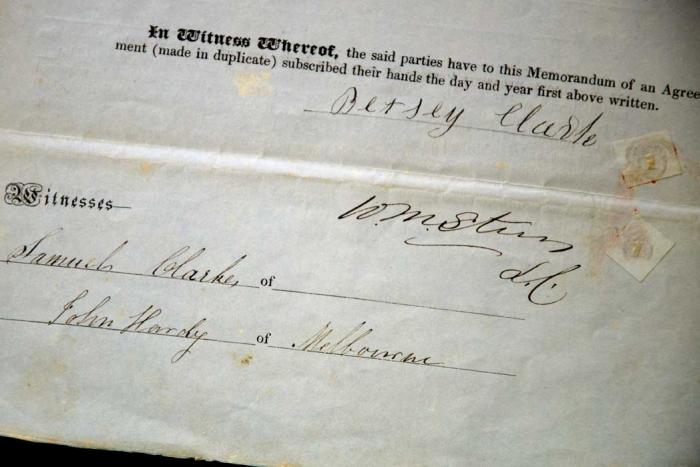 In Witness Whereof, the said parties have to this Memorandum of an Agree-
ment (made in duplicate) subscribed their hands the day and year first above written.
Betsey Clark
Witnesses
Wm.
L.C.
Samuel Clarke, of
John Hardy of Melbourne